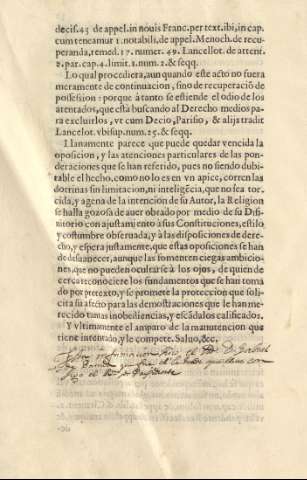 decis. 43 de appel. in nouis Franc. per text. ibi, in cap.
cum teneamur 1. notabili, de appel. Menoch. de recu-
peranda, remed. 17. numer. 49. Lancellot. de attent.
2. par. cap. 4. limit. 1. num. 2. & seqq.
Lo qual procediera, aun quando este acto no fuera
meramente de continuacion, sino de recuperació de
possession: porque à tanto se estiende el odio de los
atentados, que està buscando al Derecho medios pa-
ra excluirlos, vt cum Decio, Parisio, & alijs tradit
Lancelot. vbi sup. num. 25. & seqq.
Llanamente parece que puede quedar vencida la
oposicion, y las atenciones particulares de las pon-
deraciones que se han referido, pues no siendo dubi-
table el hecho, como no lo es en vn apice, corren las
dotrinas sin limitacion, ni inteligécia, que no sea tor-
cida, y agena de la intencion de su Autor, la Religion
se halla gozosa de auer obrado por medio de su Difi-
nitorio con ajustamiento à sus Constituciones, estilo
y costumbre obseruada, y à las disposiciones de dere-
cho, y espera justamente, que estas oposiciones se han
de desuanecer, aunque las fomenten ciegas ambicio-
nes, que no pueden ocultarse à los ojos, de quien de
cerca reconociere los fundamentos que se han toma
do por pretexto, y se promete la proteccion que soli-
cita su afecto para las demostraciones que le han me-
recido tantas inobediencias, y escádalos calificados.
Y vltimamente el amparo de la manutencion que
tiene intentado, y le compete. Saluo, &c.